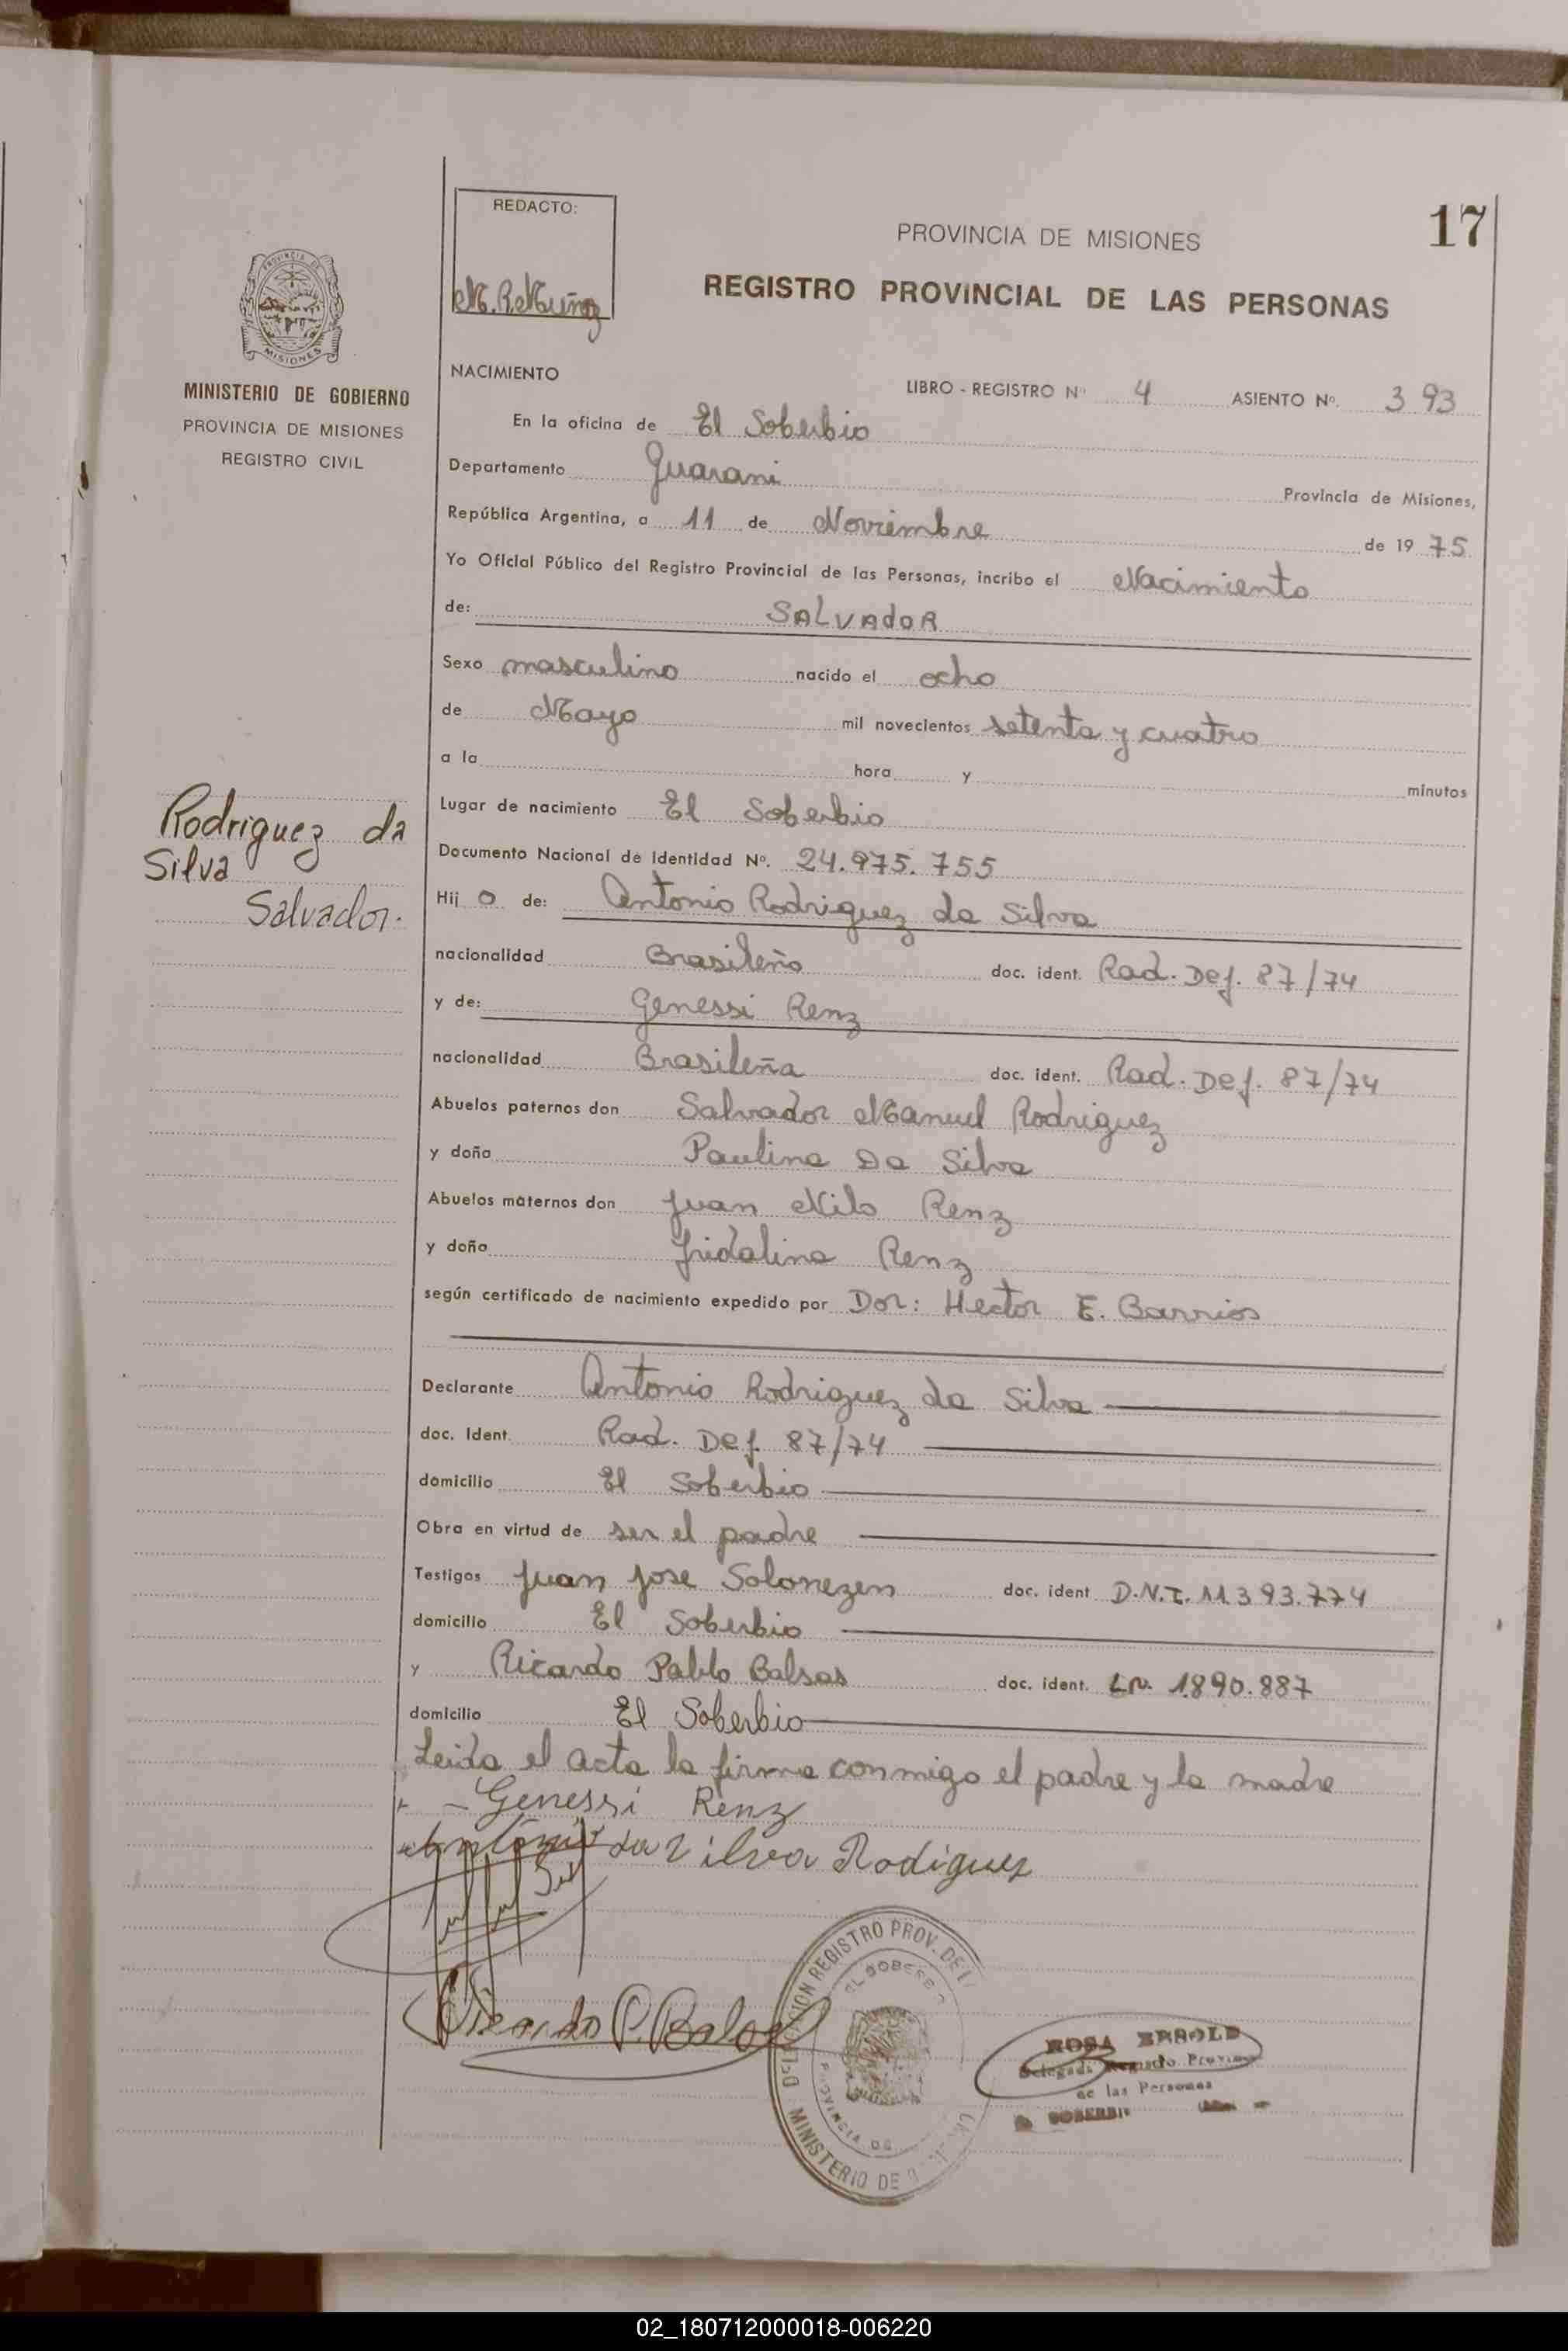 17
REDACTO:
M. R. Muñoz
PROVINCIA DE MISIONES
REGISTRO PROVINCIAL DE LAS PERSONAS
PROVINCIA DE
MISIONES
MINISTERIO DE GOBIERNO
PROVINCIA DE MISIONES
REGISTRO CIVIL
NACIMIENTO LIBRO - REGISTRO Nº 4 ASIENTO Nº. 393
En la oficina de El Soberbio
Departamento Guarani Provincia de Misiones,
República Argentina, a 11 de Noviembre de 1975
Yo Oficial Público del Registro Provincial de las Personas, incribo el Nacimiento
de: SALVADOR
Sexo masculino nacido el ocho
de Mayo mil novecientos setenta y cuatro
a la hora y minutos
Lugar de nacimiento El Soberbio
Rodriguez da
Silva
Salvador.
Documento Nacional de Identidad Nº. 24.975.755
Hij o de: Antonio Rodriguez da Silva
nacionalidad Brasileño doc. ident. Rad. Def. 87/74
y de: Genessi Renz
nacionalidad Brasileña doc. ident. Rad. Def. 87/74
Abuelos paternos don Salvador Manuel Rodriguez
y doña Paulina Da Silva
Abuelos maternos don Juan Nilo Renz
y doña Renz
según certificado de nacimiento expedido por Dor: Hector E. Barrios
Declarante Antonio Rodriguez da Silva
doc. Ident. Rad. Def 87/74
domicilio El Soberbio
Obra en virtud de ser el padre
Testigos Juan Jose Solonezen doc. ident D.N.I. 11.393.774
domicilio El Soberbio
y Ricardo Pablo Balsas doc. ident. 1.890.887
domicilio El Soberbio
Leida el acta la firma conmigo el padre y la madre
Genessi Renz
Antonio da Silva Rodiguez
Ricardo P. Balsa
DELEGACION REGISTRO PROV. DE L
EL SOBERB
PROVINCIA DE
MINISTERIO DE
ROSA
Registro Provinc
de las Personas
SOBERBIO
02_180712000018-006220